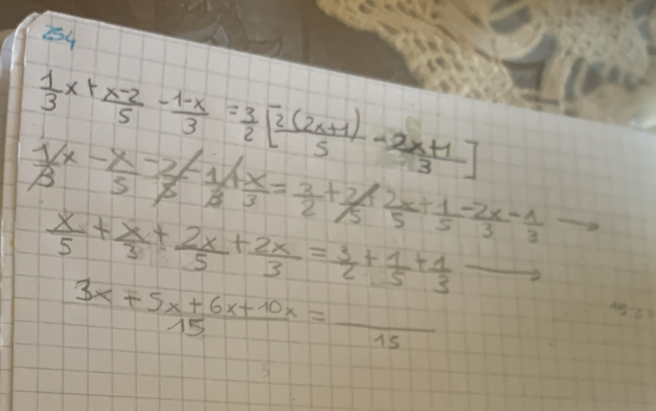 254
1/3 x + x-2/5 - 1-x/3 = 3/2 [2(2x+1)/5 - 2x+1/3]
1/3 x - x/5 - 2/5 - 1/3 + x/3 = 3/2 + 2/5 + 2x/5 + 1/5 - 2x/3 - 1/3 →
x/5 + x/3 + 2x/5 + 2x/3 = 3/2 + 1/5 + 1/3 →
3x + 5x + 6x + 10x/15 = /15